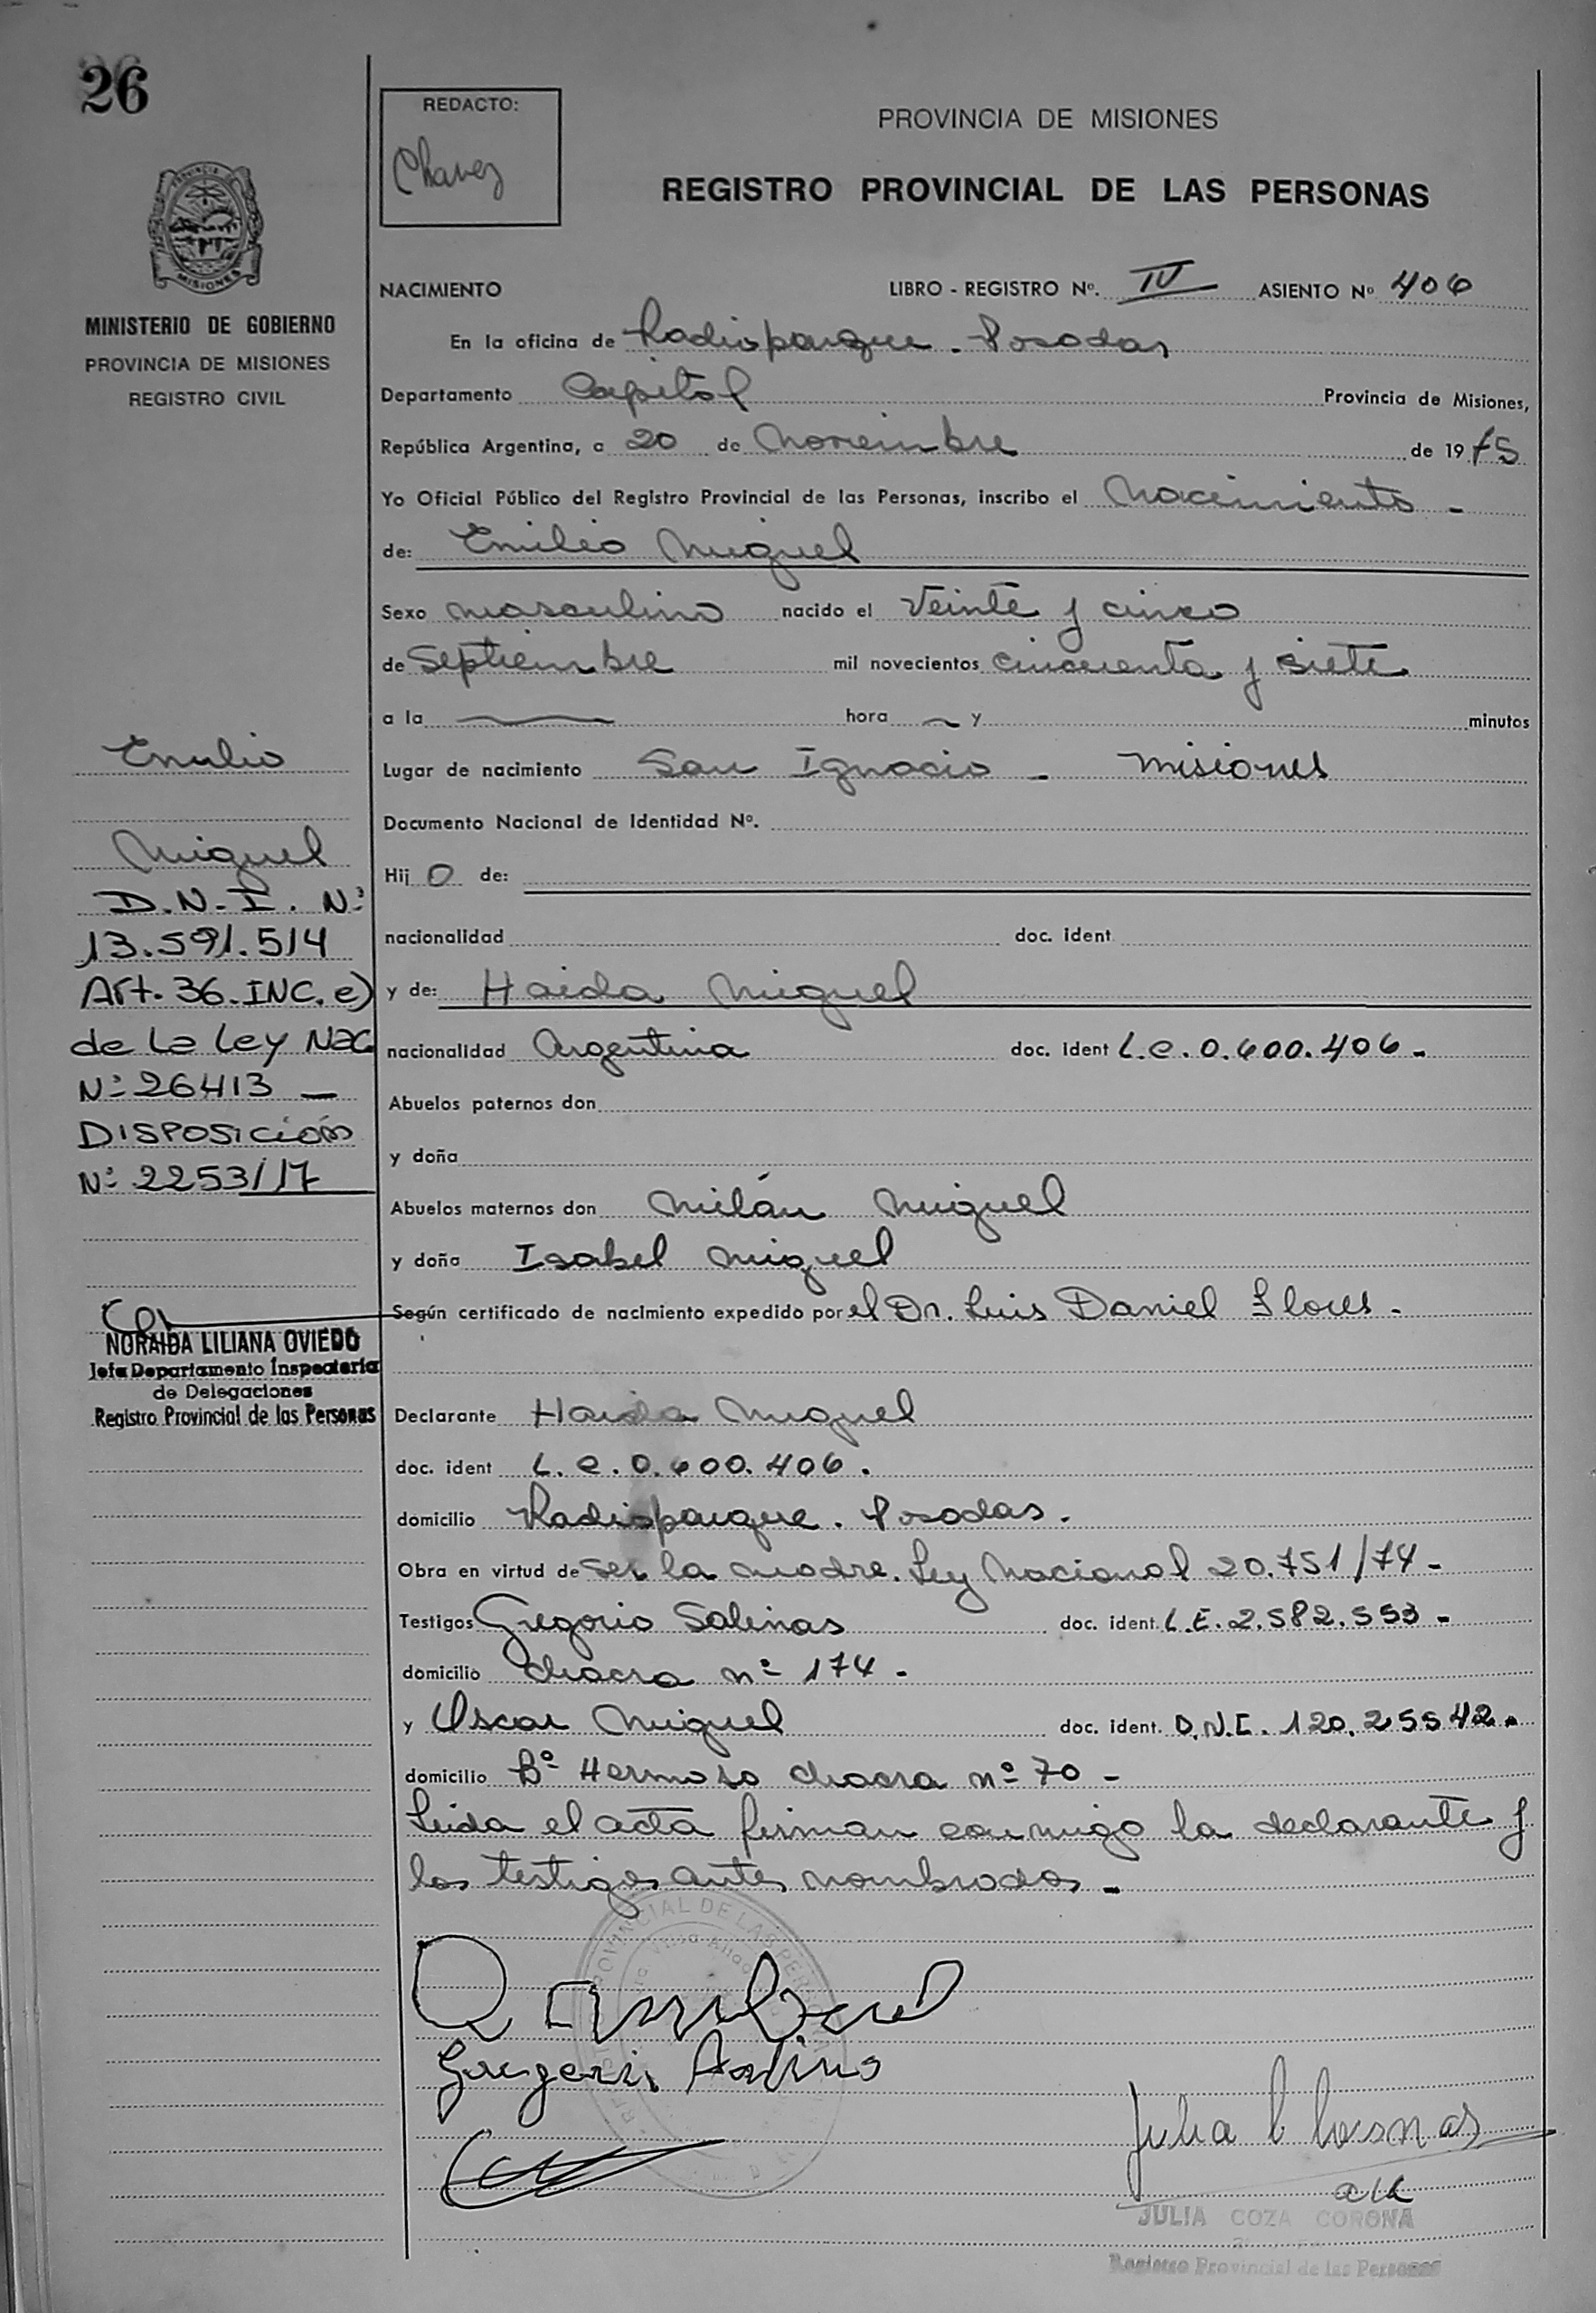 26
REDACTO:
Chavez
PROVINCIA DE MISIONES
REGISTRO PROVINCIAL DE LAS PERSONAS
MISIONES
MINISTERIO DE GOBIERNO
PROVINCIA DE MISIONES
REGISTRO CIVIL
NACIMIENTO LIBRO - REGISTRO Nº. IV ASIENTO Nº 406
En la oficina de Radioparque - Posadas
Departamento Capital Provincia de Misiones,
República Argentina, a 20 de Noviembre de 1975
Yo Oficial Público del Registro Provincial de las Personas, inscribo el Nacimiento -
de: Emilio Miguel
Sexo masculino nacido el Veinte y cinco
de Septiembre mil novecientos cincuenta y siete
a la hora y minutos
Lugar de nacimiento San Ignacio - Misiones
Documento Nacional de Identidad Nº.
Hij o de:
nacionalidad doc. ident
y de: Haida Miguel
nacionalidad Argentina doc. ident L.C. 0.600.406 -
Abuelos paternos don
y doña
Abuelos maternos don Milán Miguel
y doña Isabel Miguel
Según certificado de nacimiento expedido por el Dr. Luis Daniel Flores -
Declarante Haida Miguel
doc. ident L.C. 0.600.406.
domicilio Radioparque. Posadas.
Obra en virtud de ser la madre. Ley Nacional 20.751/74 -
Testigos Gregorio Salinas doc. ident. L.E. 2.582.553 -
domicilio chacra nº 174 -
y Oscar Miguel doc. ident. D.N.I. 120.25542.
domicilio Bº Hermoso chacra nº 70 -
Leida el acta firman conmigo la declarante y
los testigos antes nombrados -
Emilio
Miguel
D.N.I. Nº
13.591.514
Art. 36. INC. e)
de La Ley Nac
Nº 26413 —
DISPOSICIÓN
Nº 2253/17
NORAIDA LILIANA OVIEDO
Jefa Departamento Inspectoria
de Delegaciones
Registro Provincial de las Personas
JULIA COZA CORONA
Registro Provincial de las Personas